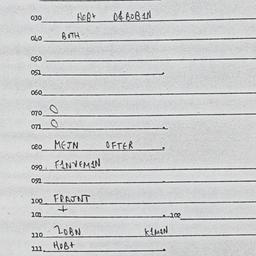 030 HOB+ D&BOB1N
040 BOTH
050
051 .
060
070 O
071 O .
080 MEJN OFTER .
090 F1NVEM1N
091
100 FRAJNT
101 + . 102
110 ZOBN K1M1N
111 HOB+ .